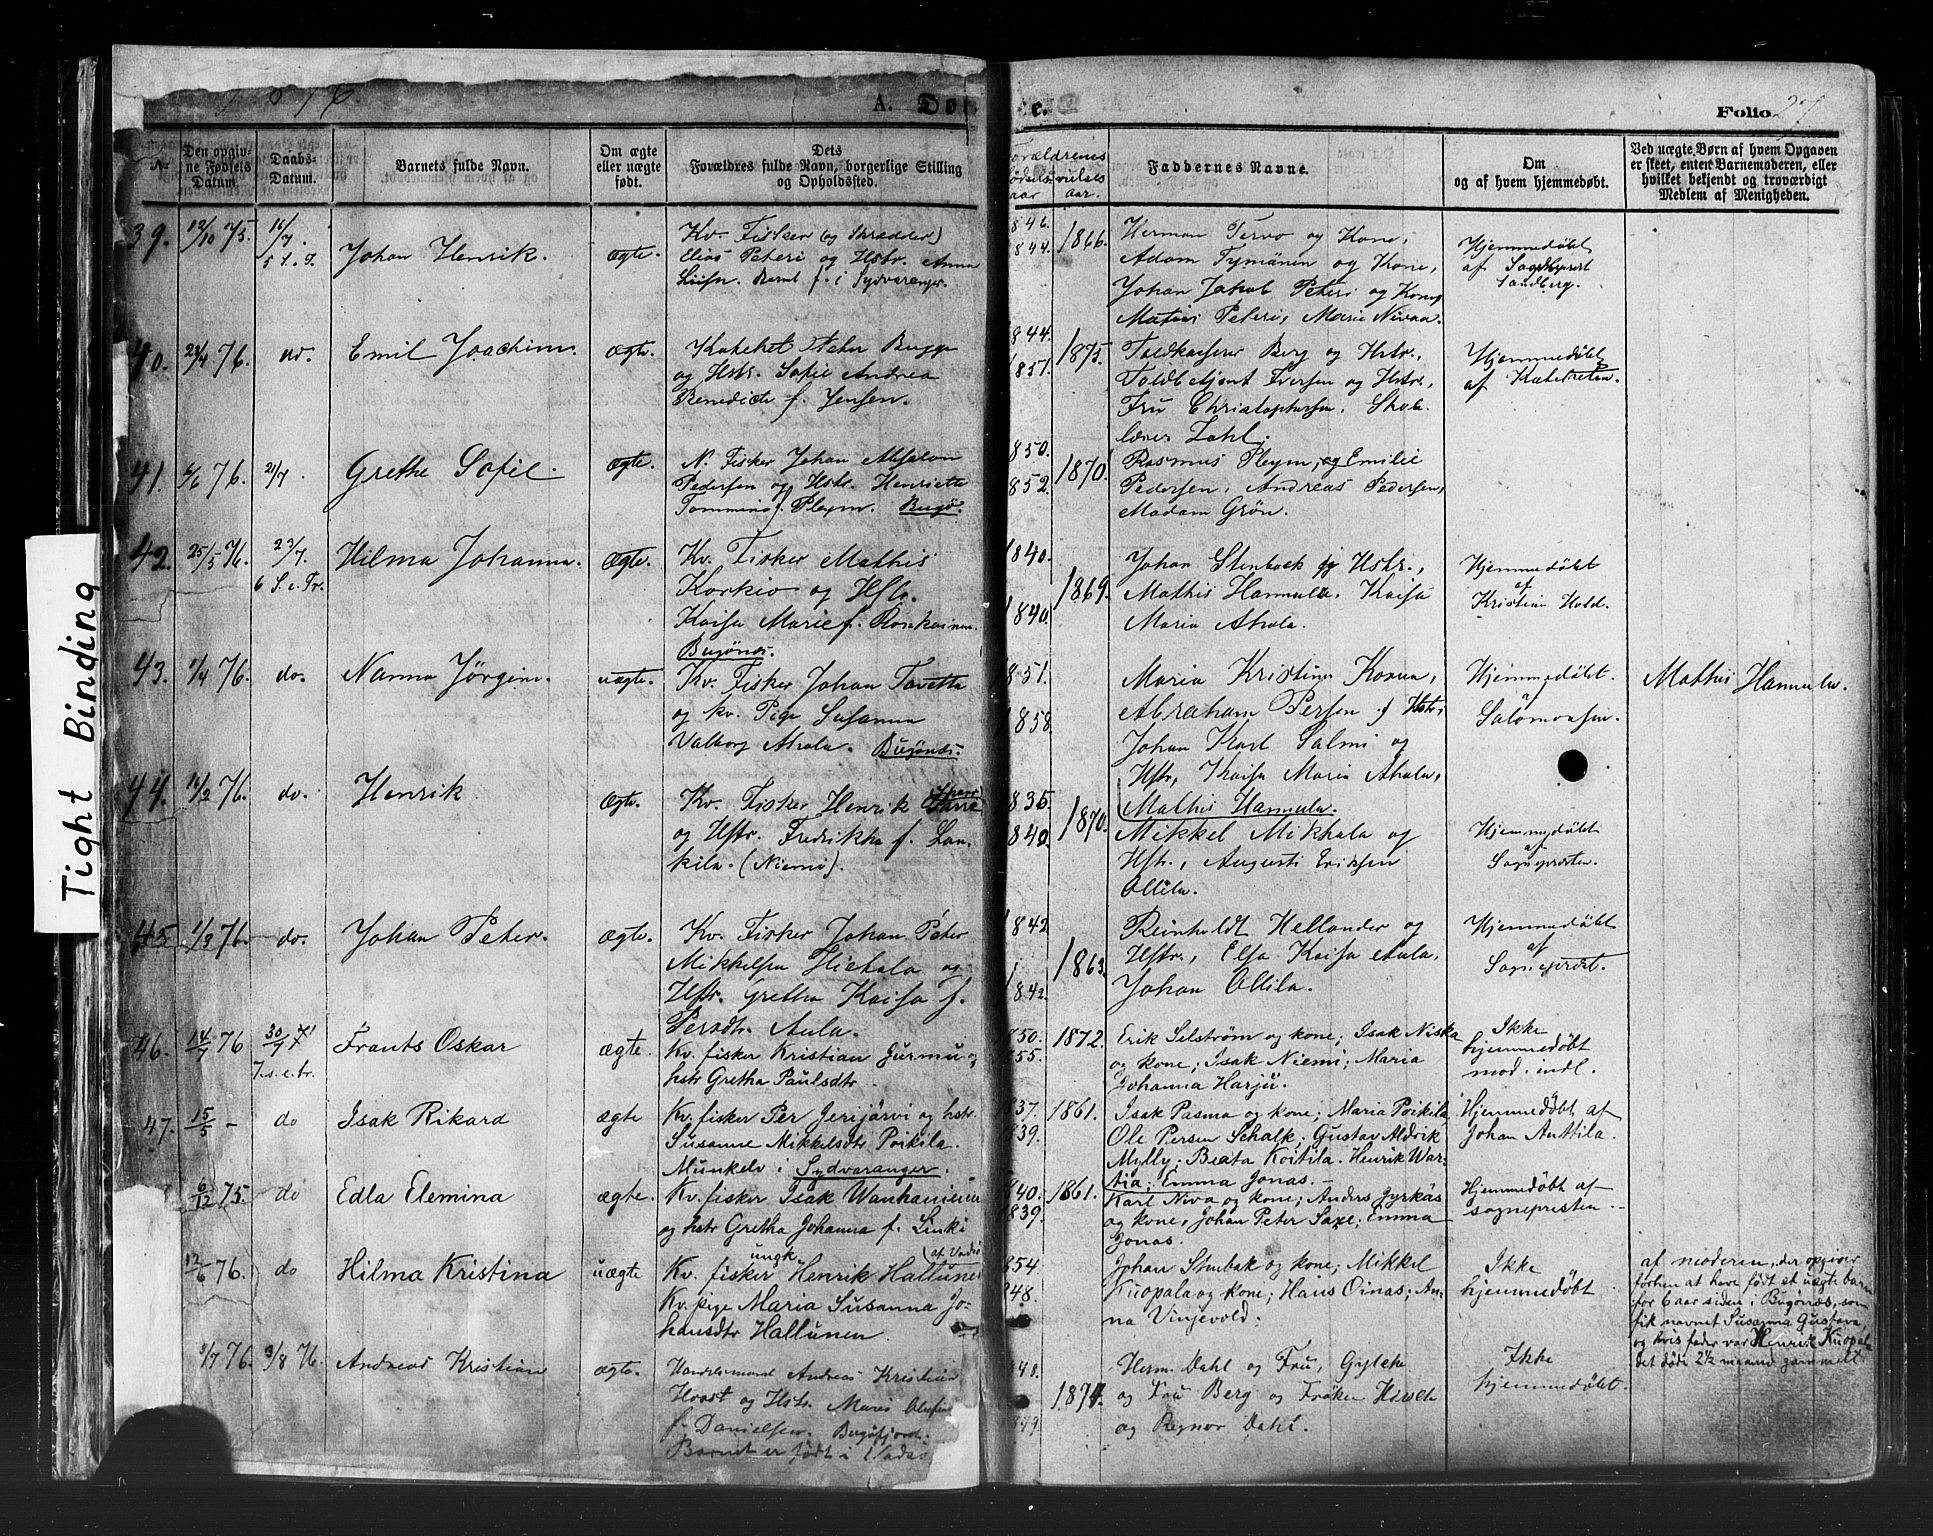 1876.
A. Døb
e.
Folio 27
Nr.
Den opgiv-
ne Fødsels
Datum.
Daabs-
Datum.
Barnets fulde Navn.
Om ægte
eller uægte
født.
Dets
Forældres fulde Navn, borgerlige Stilling
og Opholdssted.
Faddernes Navne.
Om
og af hvem hjemmedøbt.
Ved uægte Børn af hvem Opgaven
er skeet, enten Barnemoderen, eller
hvilket bekjendt og troværdigt
Medlem af Menigheden.
Tight Binding
39. 12/10 75. 16/7. 5 S. e. T. Johan Henrik. ægte.
Kv. Fisker (og Skrædder)
Elias Peteri og Hstr. Anna
f. i Sydvaranger.
846.
844. 1866.
Herman Tervo og Kone,
Adam Tymänen og Kone,
Johan Jakob Peteri og Kone,
Matias Peteri, Marie Nivaa.
Hjemmedøbt
af Sognepræst
Sandberg.
40. 23/4 76. do. Emil Joachim. ægte.
Kateket Peter Bugge
og Hstr. Sofie Andrea
Benedicte f. Jensen.
844.
1857. 1875.
Toldkasserer Berg og Hstr.,
Toldbetjent Iversen og Hstr.,
Fru Christophersen, Skol-
lærer Zahl.
Hjemmedøbt
af Katecheten.
41. 6/6 76. 21/7. Grethe Sofie. ægte.
N. Fisker Johan Absalon
Pedersen og Hstr. Henriette
Tommine f. Pleym. Bugø.
850.
852. 1870.
Rasmus Pleym, og Emilie
Pedersen, Andreas Pedersen,
Madam Grøn.
42. 25/5 76. 23/7. 6 S. e. Tr. Hilma Johanna. Ægte.
Kv. Fisker Mathis
Korkio og Hstr.
Kaisa Marie f.
Bugønes.
1840.
1840. 1869.
Johan Stenbock og Hstr.,
Mathis Hannula, Kaisa
Maria Ahola.
Hjemmedøbt
af
Kristian Hold.
43. 1/4 76. do. Nanna Jørgine. uægte.
Kv. Fisker Johan
og kv. Pige Susanna
Valborg Ahola. Bugønes.
1851.
1858.
Maria Kristine Korva,
Abraham Persen og Hstr.,
Johan Karl Salmi og
Hstr., Kaisa Maria Ahola,
Mathis Hannula.
Hjemmedøbt
a
Salomonsen.
Mathis Hannula.
44. 16/2 76. do. Henrik Ægte.
Kv. Fisker Henrik
og Hstr. Fredrikka f. Lan-
kila. (Niemi).
1835
1840. 1870.
Mikkel Mikkala og
Hstr., Augusti Eriksen
Ollila.
Hjemmedøbt
af
Sognepræsten.
45 1/3 76. do. Johan Peter. ægte.
Kv. Fisker Johan Peter
Mikkelsen Hietala og
Hstr. Gretha Kaisa f.
Persdtr. Aula.
1842
1842. 1863.
Reinholdt Hellander og
Hstr., Elsa Kaisa Aula,
Johan Ollila.
Hjemmedøbt
af
Sognepræst.
46. 14/7 76 30/7 7. s. e. tr. Frants Oskar ægte.
Kv. fisker Kristian Gurmu og
hstr Gretha Paulsdtr.
850.
855. 1872.
Erik Selström og kone; Isak Niska
og kone; Isak Niemi; Maria
Johanna Harju.
Ikke
hjemmedøbt
mod. indl.
47. 15/5 - do Isak Rikard ægte
Kv. fisker Per Jerijärvi og hstr.
Susanne Mikkelsdtr Poikila.
Munkelv i Sydvaranger.
837.
839. 1861.
Isak Pasma og kone; Maria Poikila,
Ole Persen Schalk; Gustav Aldrik
Mylly; Beata Koitila. Henrik War-
tia; Emma Jonas.
Hjemmedøbt af
Johan Anttila.
6/12 75. do Edla Elemina ægte.
Kv. fisker Isak Wanhaniemi
og hstr Gretha Johanna f. Linki
840.
839. 1861.
Karl Niva og kone; Anders Jyrkäs
og kone, Johan Peter Saxe; Emma
Jonas.
Hjemmedøbt af
sognepresten.
12/6 76. do Hilma Kristina uægte
ungk. (af Vadsø
Kv. fisker Henrik Hallunen
Kv. pige Maria Susanna Jo-
hansdtr Hallunen.
854.
848.
Johan Stubak og kone; Mikkel
Kuopala og kone; Hans Oinas; An-
na Vinjevold.
Ikke
hjemmedøbt
af moderen, der opgiver
forhen at have født et uægte barn
for 6 aar siden i Bugønæs, som
fik navnet Susanna Gustava,
og hvis fader var Henrik Kuopala
det døde 2½ maaned gammelt
3/7 76. 3/8 76. Andreas Kristian ægte.
Handelsmand Andreas Kristian
og Hstr. Marie Olufine
f. Danielsen. Bugøfjord.
Barnet er født i Vadsø
848.
849. 1874.
Herm. Dahl og Fru,
og Fru Berg og Frøken
og Regnor Dahl.
Ikke
hjemmedøbt.